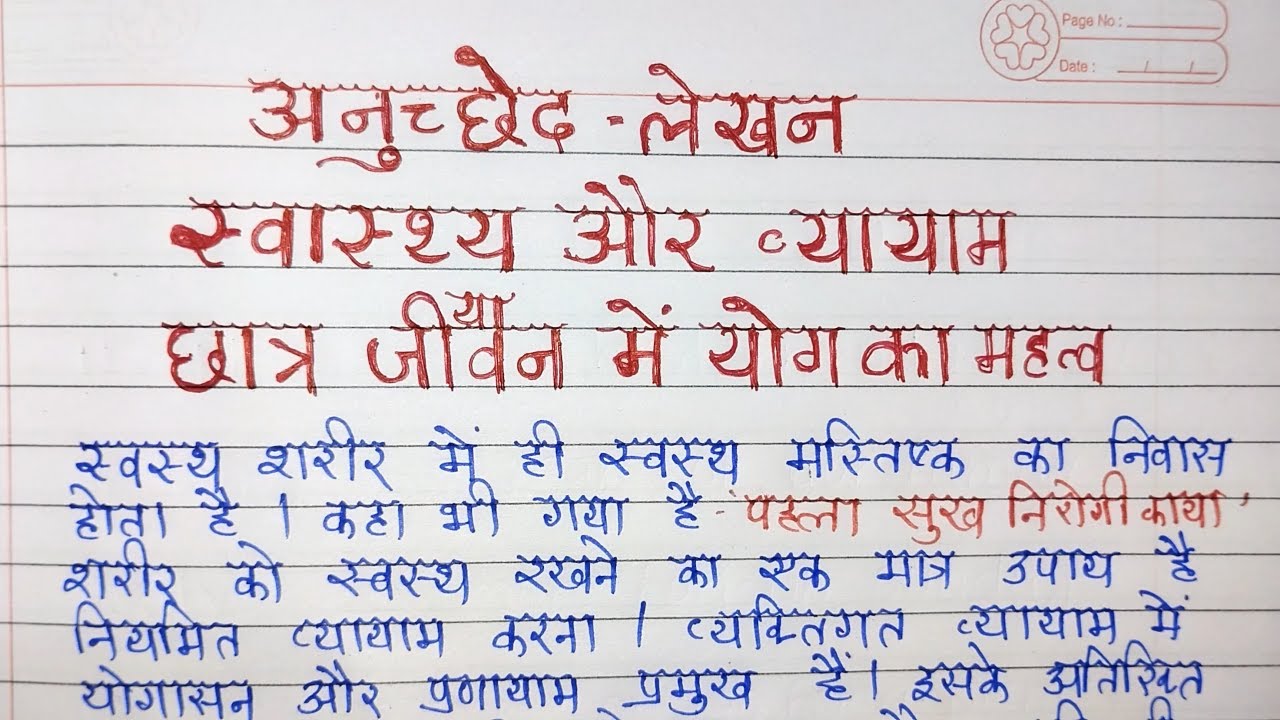 Page No :
Date : / /
अनुच्छेद - लेखन
स्वास्थ्य और व्यायाम
या
छात्र जीवन में योग का महत्व
स्वस्थ शरीर में ही स्वस्थ मस्तिष्क का निवास
होता है । कहा भी गया है - 'पहला सुख निरोगी काया'
शरीर को स्वस्थ रखने का एक मात्र उपाय है
नियमित व्यायाम करना । व्यक्तिगत व्यायाम में
योगासन और प्रणायाम प्रमुख हैं। इसके अतिरिक्त